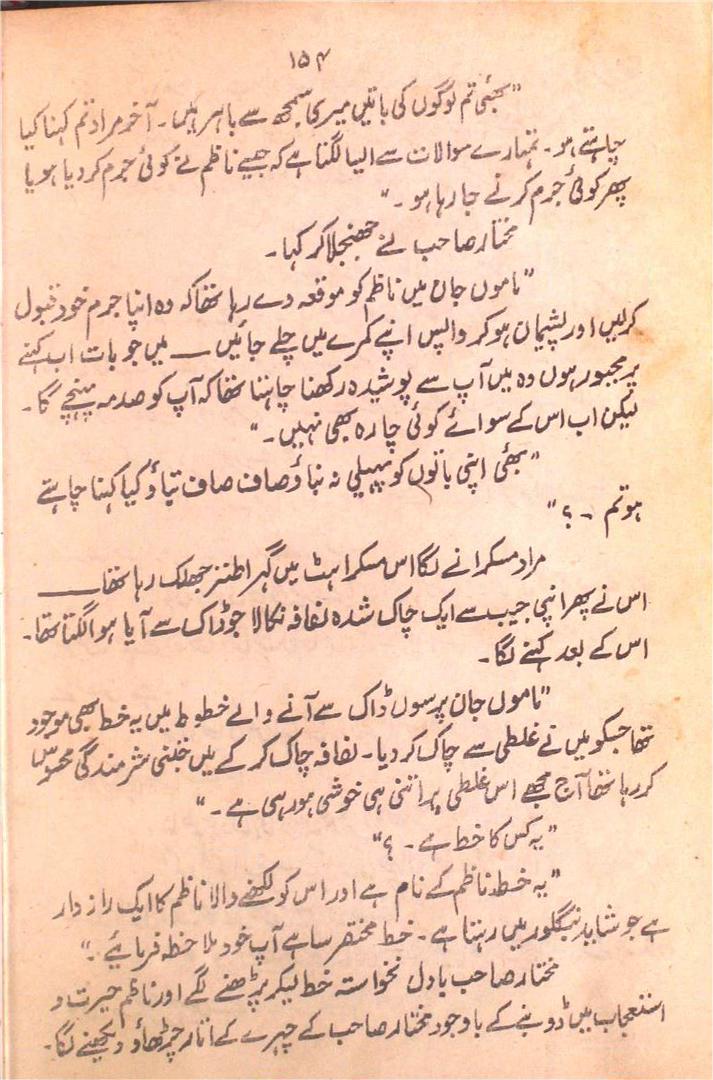 ۱۵۴
"بھئی تم لوگوں کی باتیں میری سمجھ سے باہر ہیں۔ آخر مراد تم کہنا کیا
چاہتے ہو۔ تمہارے سوالات سے ایسا لگتا ہے کہ جیسے ناظم نے کوئی جرم کر دیا ہو یا
پھر کوئی جرم کرنے جا رہا ہو۔"
مختار صاحب نے جھنجلا کر کہا۔
"ماموں جان میں ناظم کو موقعہ دے رہا تھا کہ وہ اپنا جرم خود قبول
کر لیں اور پشیمان ہو کر واپس اپنے کمرے میں چلے جائیں ــــ میں جو بات اب کہنے
پر مجبور ہوں وہ میں آپ سے پوشیدہ رکھنا چاہتا تھا کہ آپ کو صدمہ پہنچے گا۔
لیکن اب اس کے سوائے کوئی چارہ بھی نہیں۔"
"بھئی اپنی باتوں کو پہیلی نہ بناؤ صاف صاف بتاؤ کیا کہنا چاہتے
ہو تم ۔ ؟"
مراد مسکرانے لگا اس مسکراہٹ میں گہرا طنز جھلک رہا تھا ــــ
اس نے پھر اپنی جیب سے ایک چاک شدہ لفافہ نکالا جو ڈاک سے آیا ہوا لگتا تھا۔
اس کے بعد کہنے لگا۔
"ماموں جان پرسوں ڈاک سے آنے والے خطوط میں یہ خط بھی موجود
تھا جسکو میں نے غلطی سے چاک کر دیا۔ لفافہ چاک کر کے میں جتنی شرمندگی محسوس
کر رہا تھا آج مجھے اس غلطی پر اتنی ہی خوشی ہو رہی ہے۔"
"یہ کس کا خط ہے ۔ ؟"
"یہ خط ناظم کے نام ہے اور اس کو لکھنے والا ناظم کا ایک راز دار
ہے جو شاید بنگلور میں رہتا ہے۔ خط مختصر سا ہے آپ خود ملاحظہ فرمائیے۔"
مختار صاحب بادل نخواستہ خط لیکر پڑھنے لگے اور ناظم حیرت و
استعجاب میں ڈوبنے کے باوجود مختار صاحب کے چہرے کے اتار چڑھاؤ دیکھنے لگا۔